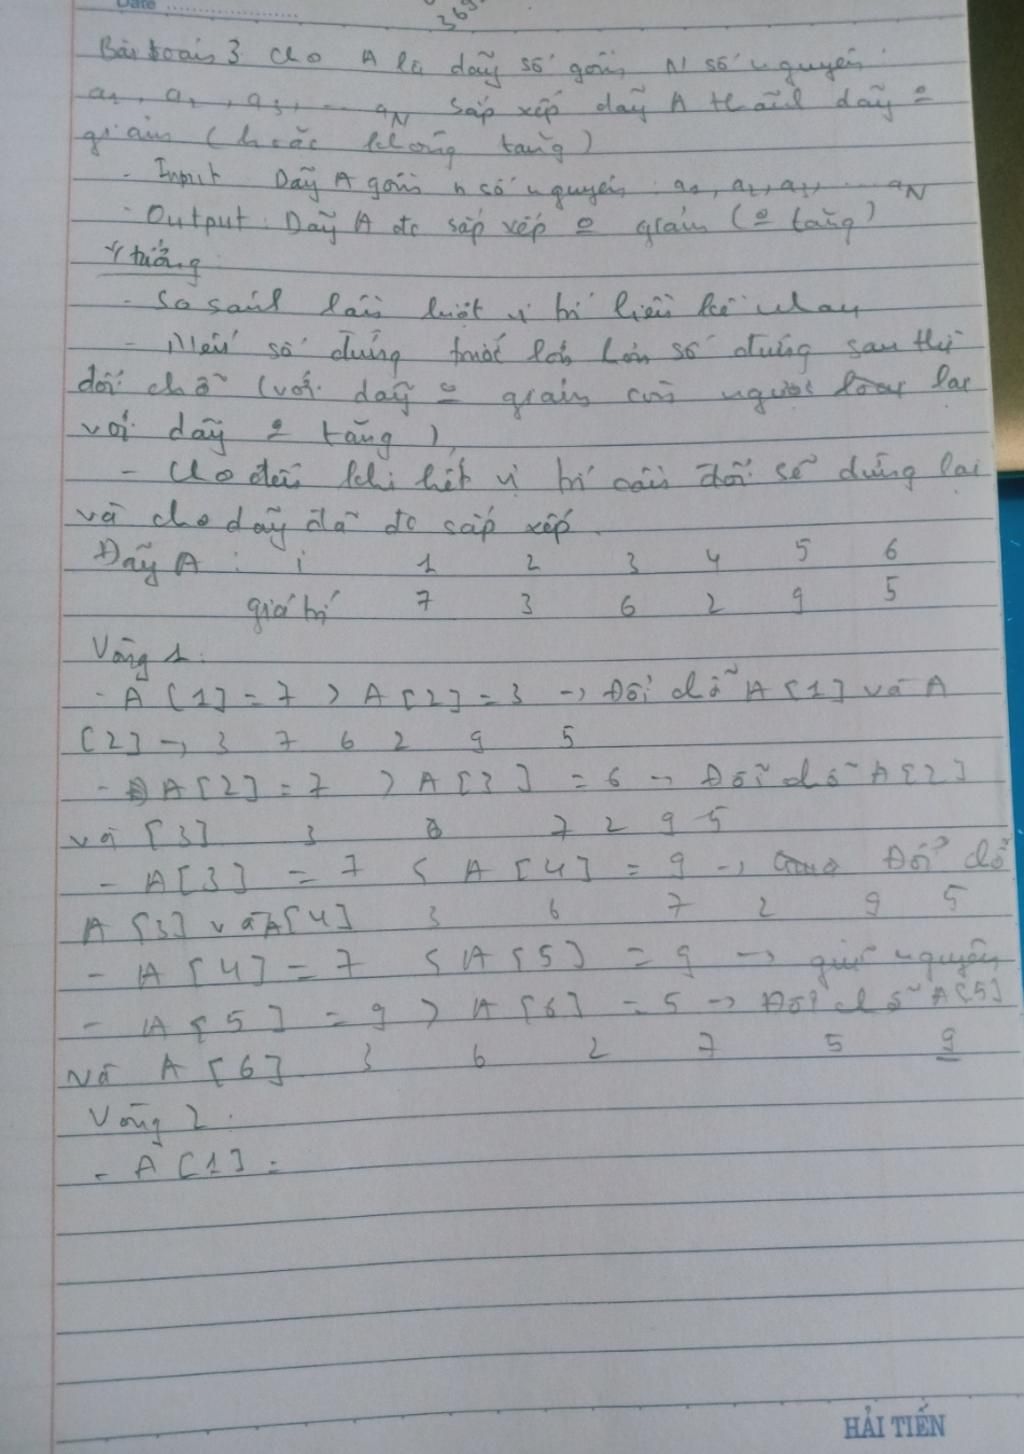 Date
369
Bài toán 3 cho A là dãy số gồm N số nguyên
a1, a2, a3, ... aN sắp xếp dãy A thành dãy ko
giảm (hoặc không tăng)
- Input Dãy A gồm n số nguyên a1, a2, a3, ... aN
- Output: Dãy A đc sắp xếp ko giảm (ko tăng)
Ý tưởng
- So sánh lần lượt vị trí liền kề nhau
- Nếu số đứng trước lớn hơn số đứng sau thì
đổi chỗ (với dãy ko giảm còn ngược lại
với dãy ko tăng)
- Cho đến khi hết vị trí cần đổi sẽ dừng lại
và cho dãy đã đc sắp xếp
Dãy A: i 1 2 3 4 5 6
giá trị 7 3 6 2 9 5
Vòng 1.
- A[1] = 7 > A[2] = 3 → Đổi chỗ A[1] và A
[2] → 3 7 6 2 9 5
- A[2] = 7 > A[3] = 6 → Đổi chỗ A[2]
và [3] 3 6 7 2 9 5
- A[3] = 7 < A[4] = 9 → Đổi chỗ
A[3] và A[4] 3 6 7 2 9 5
- A[4] = 7 < A[5] = 9 → giữ nguyên
- A[5] = 9 > A[6] = 5 → Đổi chỗ A[5]
và A[6] 3 6 2 7 5 9
Vòng 2.
- A[1] =
HẢI TIẾN